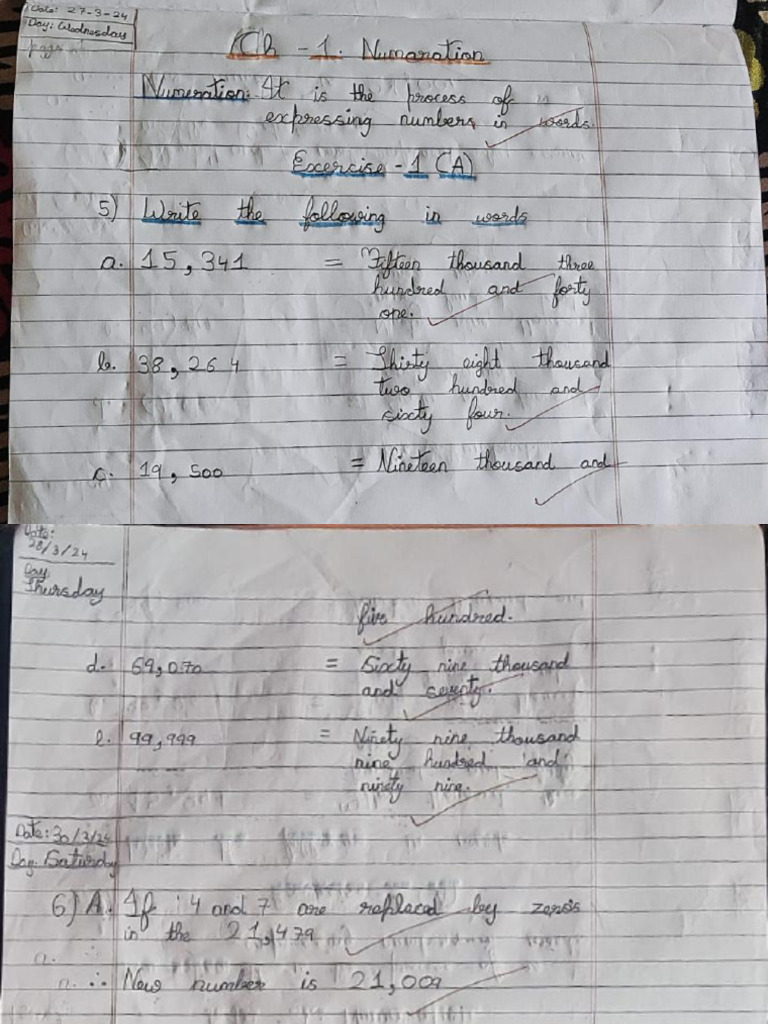 Date: 27-3-24
Day: Wednesday
Ch - 1. Numeration
Numeration: It is the process of
expressing numbers in words.
Exercise - 1 (A)
5) Write the following in words
a. 15,341 = Fifteen thousand three
hundred and forty
one.
b. 38,264 = Thirty eight thousand
two hundred and
sixty four.
c. 19,500 = Nineteen thousand and
Date:
28/3/24
Day
Thursday
five hundred.
d. 69,070 = Sixty nine thousand
and seventy.
e. 99,999 = Ninety nine thousand
nine hundred and
ninety nine.
Date: 30/3/24
Day: Saturday
6) A. If 4 and 7 are replaced by zeros
in the 21,479
∴ New number is 21,009